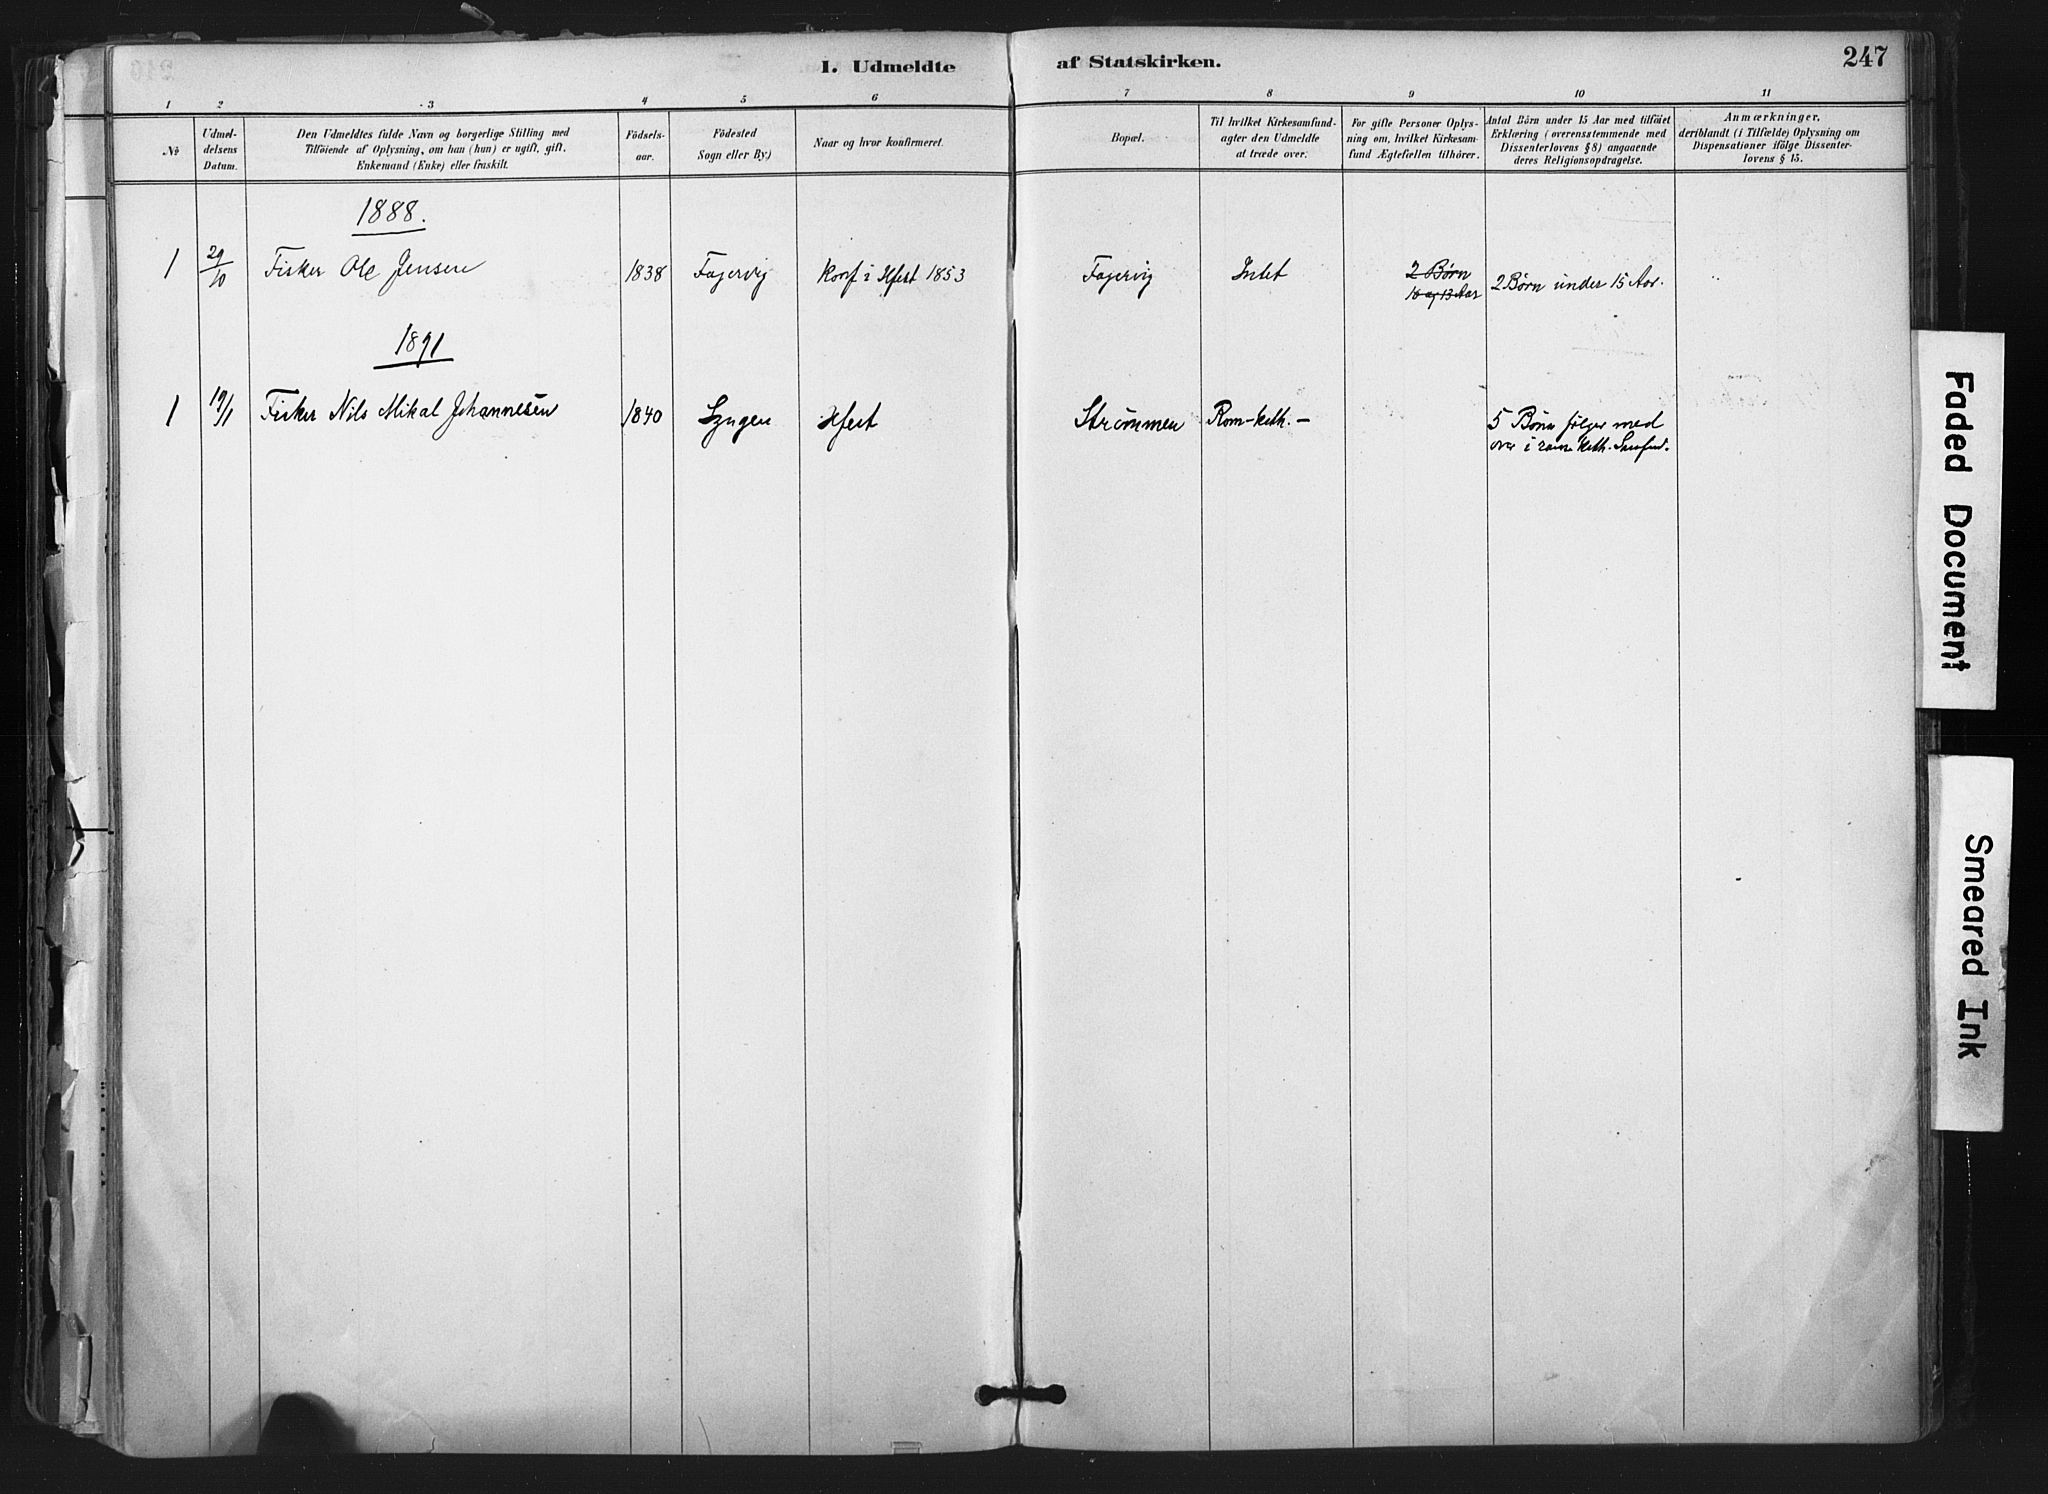 I. Udmeldte af Statskirken. 247
1 2 3 4 5 6 7 8 9 10 11
No
Udmel-
delsens
Datum.
Den Udmeldtes fulde Navn og borgerlige Stilling med
Tilföiende af Oplysning, om han (hun) er ugift, gift,
Enkemand (Enke) eller fraskilt.
Födsels-
aar.
Födested
Sogn eller By.)
Naar og hvor konfirmeret.
Bopæl.
Til hvilket Kirkesamfund-
agter den Udmeldte
at træde over.
For gifte Personer Oplys-
ning om, hvilket Kirkesam-
fund Ægtefællen tilhörer.
Antal Börn under 15 Aar med tilföiet
Erklæring (overensstemmende med
Dissenterlovens § 8) angaaende
deres Religionsopdragelse.
Anmærkninger,
deriblandt (i Tilfælde) Oplysning om
Dispensationer ifölge Dissenter-
lovens § 15.
1888.
1 29/10 Fisker Ole Jensen 1838 Fagervig Konf i Hfest 1853 Fagervig Intet 2 Børn 2 Børn under 15 Aar.
16 og 13 Aar
1891
1 19/1 Fisker Nils Mikal Johannesen 1840 Lyngen Hfest Strömmen Rom-kath. – 5 Børn følger med
over i rom kath. Samfud.
Faded Document
Smeared Ink